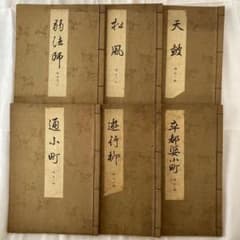 弱法師
松風
天鼓
通小町
遊行柳
卒都婆小町